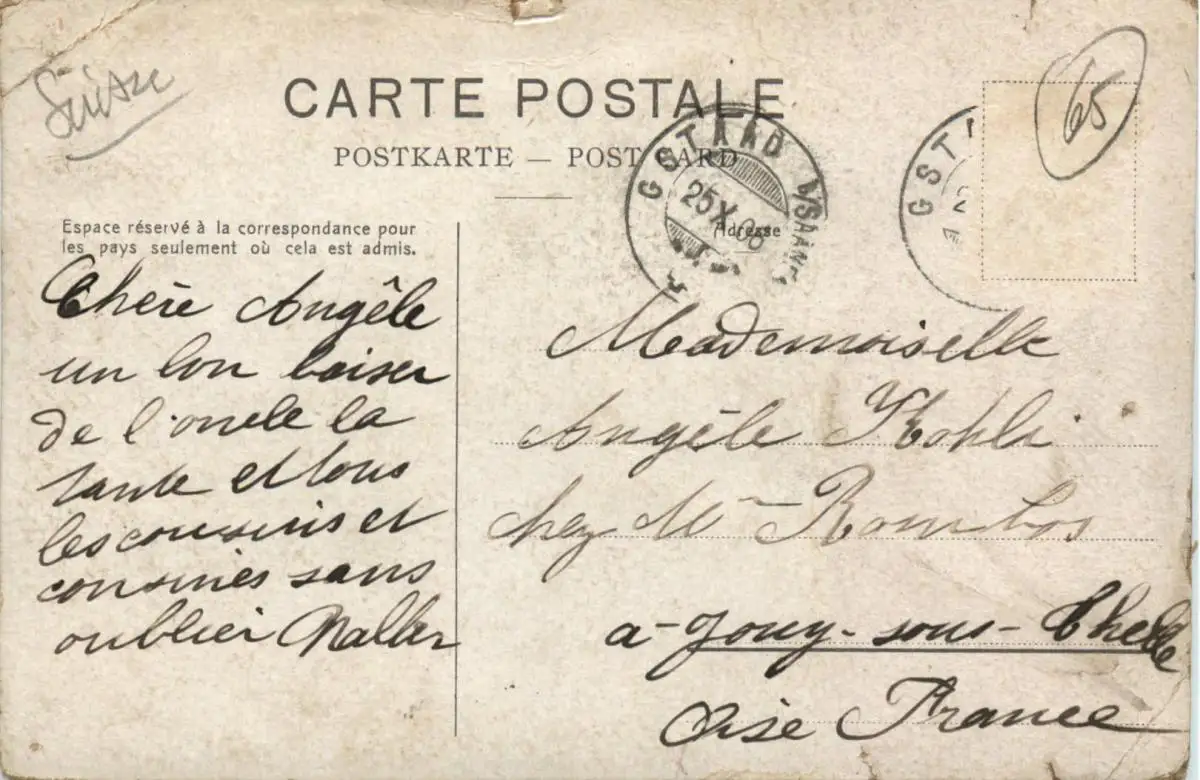 Suisse
65
CARTE POSTALE
POSTKARTE — POST CARD
GSTAAD
25 X 06
GST
Adresse
Espace réservé à la correspondance pour
les pays seulement où cela est admis.
Chère Angèle
un bon baiser
de l'oncle la
tante et tous
les cousins et
cousines sans
oublier
Mademoiselle
Angèle Kohli
chez Mr
a-Jouy-sous-Thelle
Oise France